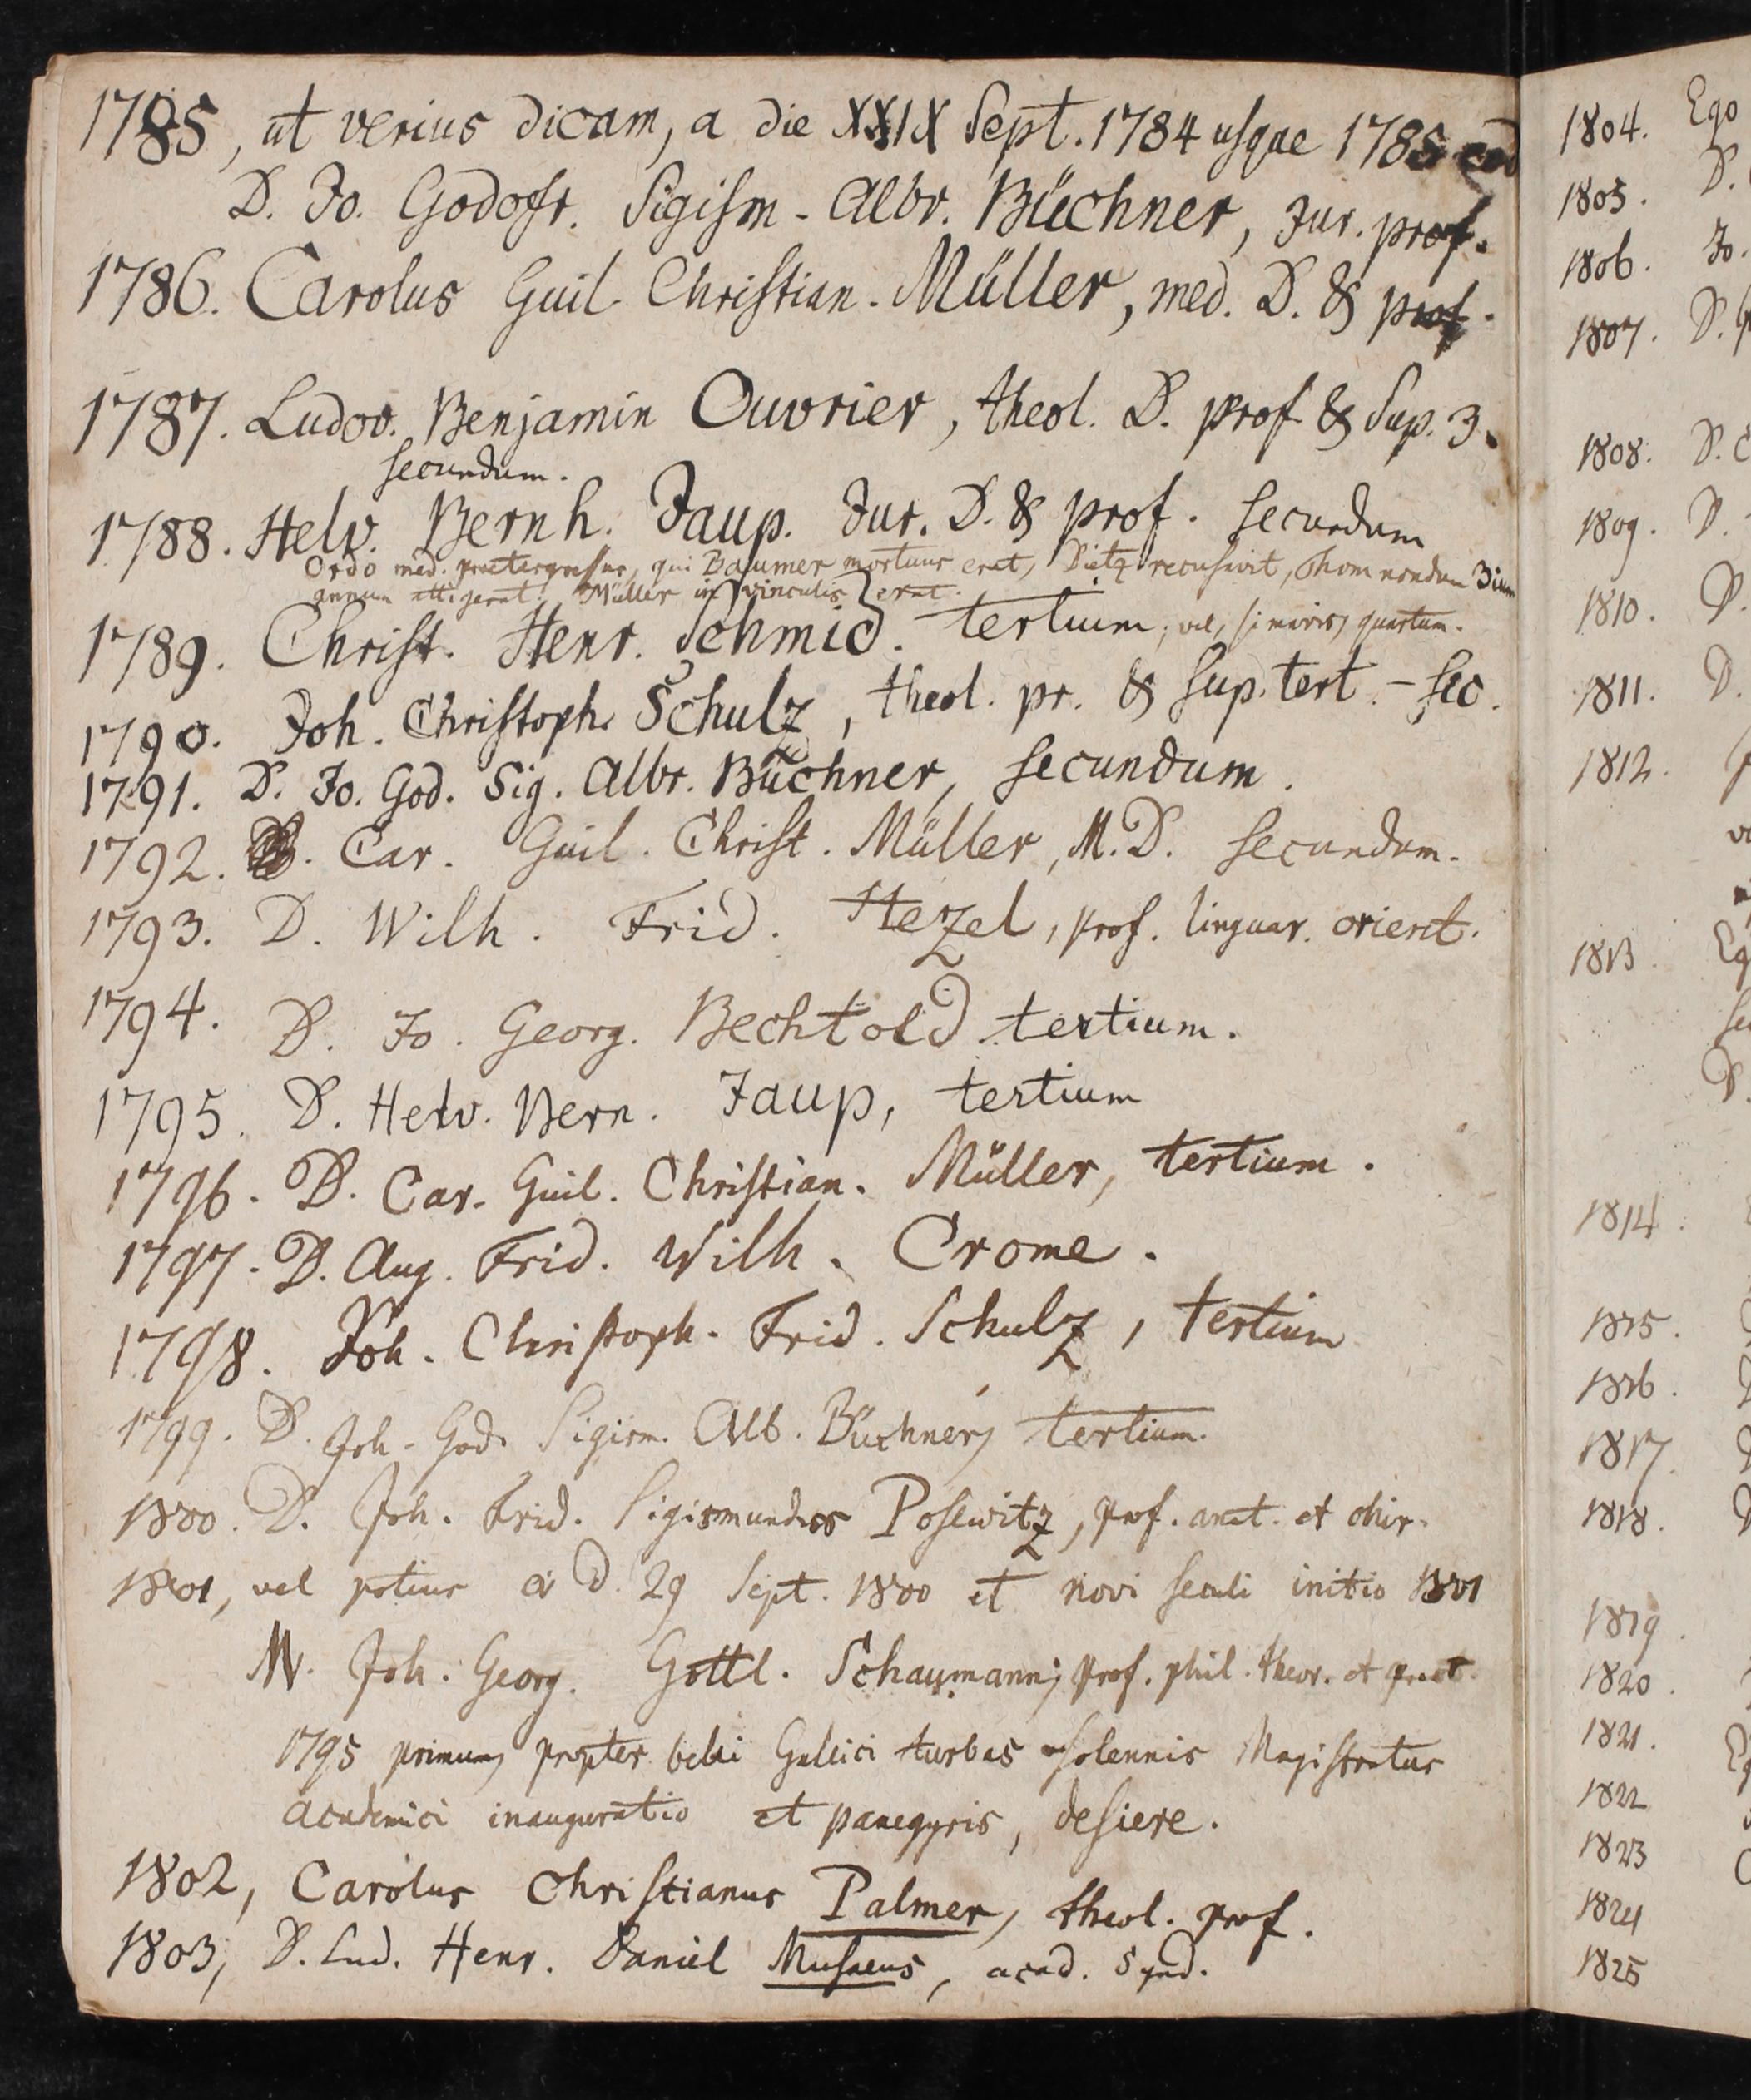 1785, ut verius dicam, a die XXIX Sept. 1784 usque 1785 eod
D. Jo. Godofr. Sigism. Albr. Büchner, Jur. prof.
1786. Carolus Guil. Christian. Müller, med. D. & prof.
1787. Ludov. Benjamin Ouvrier, theol. D. prof & Sup. 3.
secundum.
1788. Helv. Bernh. Jaup. Jur. D. & prof. secundum
Ordo med. praetergressus, qui Baumer mortuus erat, Dietz recusivit, Thom nondum 3ium
annum attigerat. Müller in vinculis erat.
1789. Christ. Henr. Schmid. tertium, vel, si mavis, quartum.
1790. Joh. Christoph. Schulz, theol. pr. & Sup. tert. - sec.
1791. D. Jo. God. Sig. Albr. Büchner, secundum.
1792. D. Car. Guil. Christ. Müller, M.D. secundum.
1793. D. Wilh. Frid. Hezel, prof. linguar. orient.
1794. D. Jo. Georg. Bechtold tertium.
1795. D. Helv. Bern. Jaup, tertium
1796. D. Car. Guil. Christian. Müller, tertium.
1797. D. Aug. Frid. Wilh. Crome.
1798. Joh. Christoph. Frid. Schulz, tertium
1799. D. Joh. God. Sigism. Alb. Büchner, tertium.
1800. D. Joh. Frid. Sigismundus Posewitz, prof. anat. et chir.
1801, vel potius a d. 29 Sept. 1800 et novi seculi initio 1801
M. Joh. Georg. Gottl. Schaumann, prof. phil. theor. et pract.
1795 primum, propter belli Gallici turbas solennis Magistratus
academici inauguratio et panegyris, desiere.
1802, Carolus Christianus Palmer, theol. prof.
1803, D. Lud. Henr. Daniel Musaeus, acad. Synd.
1804. Ego
1805. D.
1806. Jo.
1807. D.
1808. D. C
1809. D.
1810. D.
1811. D.
1812.
1813. Eg
D.
1814.
1815.
1816.
1817.
1818.
1819.
1820.
1821. Eg
1822
1823
1824
1825